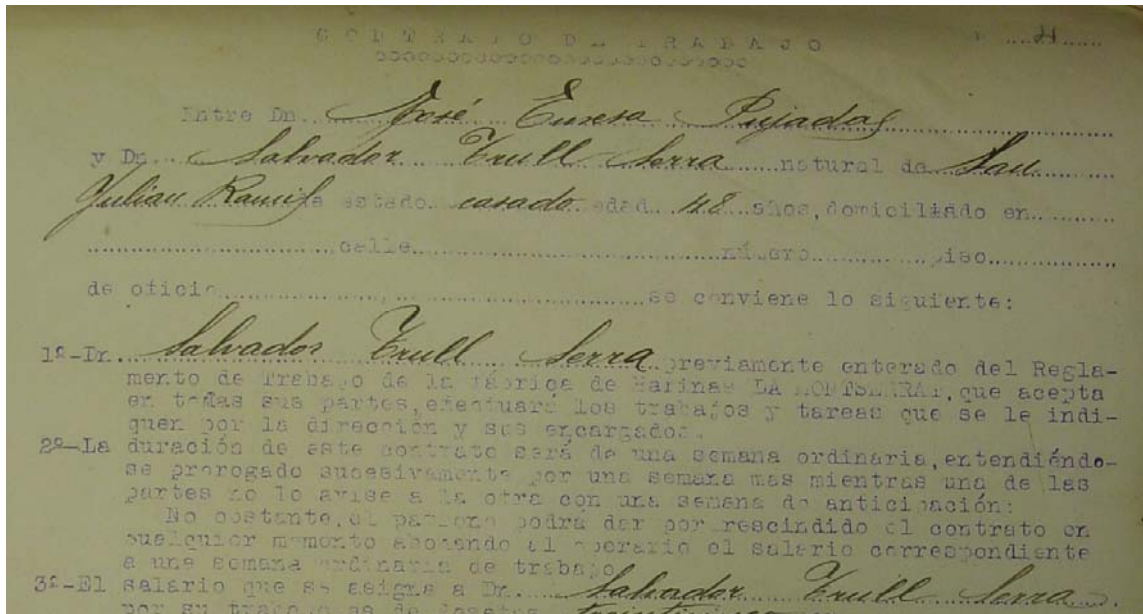 CONTRATO DE TRABAJO
Entre Dn. José Ensesa Pujadas
y Dn. Salvador Trull Serra natural de San
Julian Ramis de estado casado edad 48 años, domiciliado en
calle número piso
de oficio se conviene lo siguiente:
1º-Dn. Salvador Trull Serra previamente enterado del Regla-
mento de Trabajo de la fábrica de Harinas LA MONTSERRAT, que acepta
en todas sus partes, efectuará los trabajos y tareas que se le indi-
quen por la dirección y sus encargados.
2º-La duración de este contrato será de una semana ordinaria, entendiéndo-
se prorogado sucesivamente por una semana mas mientras una de las
partes no lo avise a la otra con una semana de anticipación:
No obstante, el patrono podrá dar por rescindido el contrato en
cualquier momento abonando al operario el salario correspondiente
a una semana ordinaria de trabajo.
3º-El salario que se asigna a Dn. Salvador Trull Serra.
por su trabajo es de pesetas